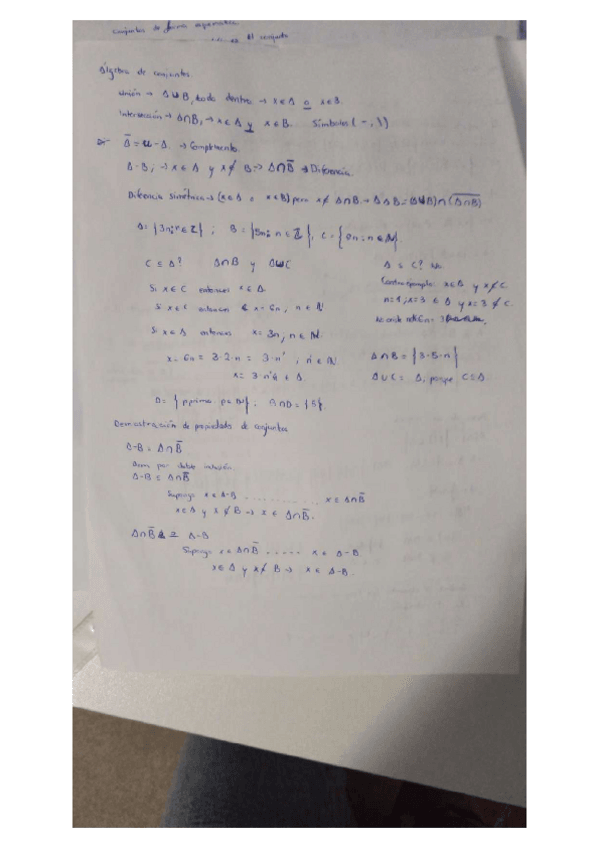 Conjuntos de forma
El conjunto
Álgebra de conjuntos.
Unión → A∪B, todo dentro → x∈A o x∈B.
Intersección → A∩B, → x∈A y x∈B. Símbolos (-, \)
Ā = U - A. → Complemento.
A-B, → x∈A y x∉B → A∩B̄ → Diferencia.
Diferencia simétrica → (x∈A o x∈B) pero x∉ A∩B. → A△B = (A∪B)∩(A∩B)̄
A = {3n; n∈Z} ; B = {5n; n∈Z}, C = {6n; n∈N}.
C ⊆ A? A∩B y A∪C
A ⊆ C? No.
Si x∈C entonces x∈A.
Contraejemplo: x∈A y x∉C.
Si x∈C entonces x=6n, n∈N
n=1, x=3 ∈ A y x=3 ∉ C.
Si x∈A entonces x=3n, n∈N.
x=6n = 3·2·n = 3·n', n'∈N.
A∩B = {3·5·n}
x=3·n' ∈ A.
A∪C = A, porque C⊆A.
D = {p primo: p∈N} ; B∩D = {5}.
Demostración de propiedades de conjuntos
A-B = A∩B̄
Dem por doble inclusión.
A-B ⊆ A∩B̄
Supongo x∈A-B .............. x∈A∩B̄
x∈A y x∉B → x∈A∩B̄.
A∩B̄ ⊇ A-B
Supongo x∈A∩B̄ ..... x∈A-B
x∈A y x∉B → x∈A-B.